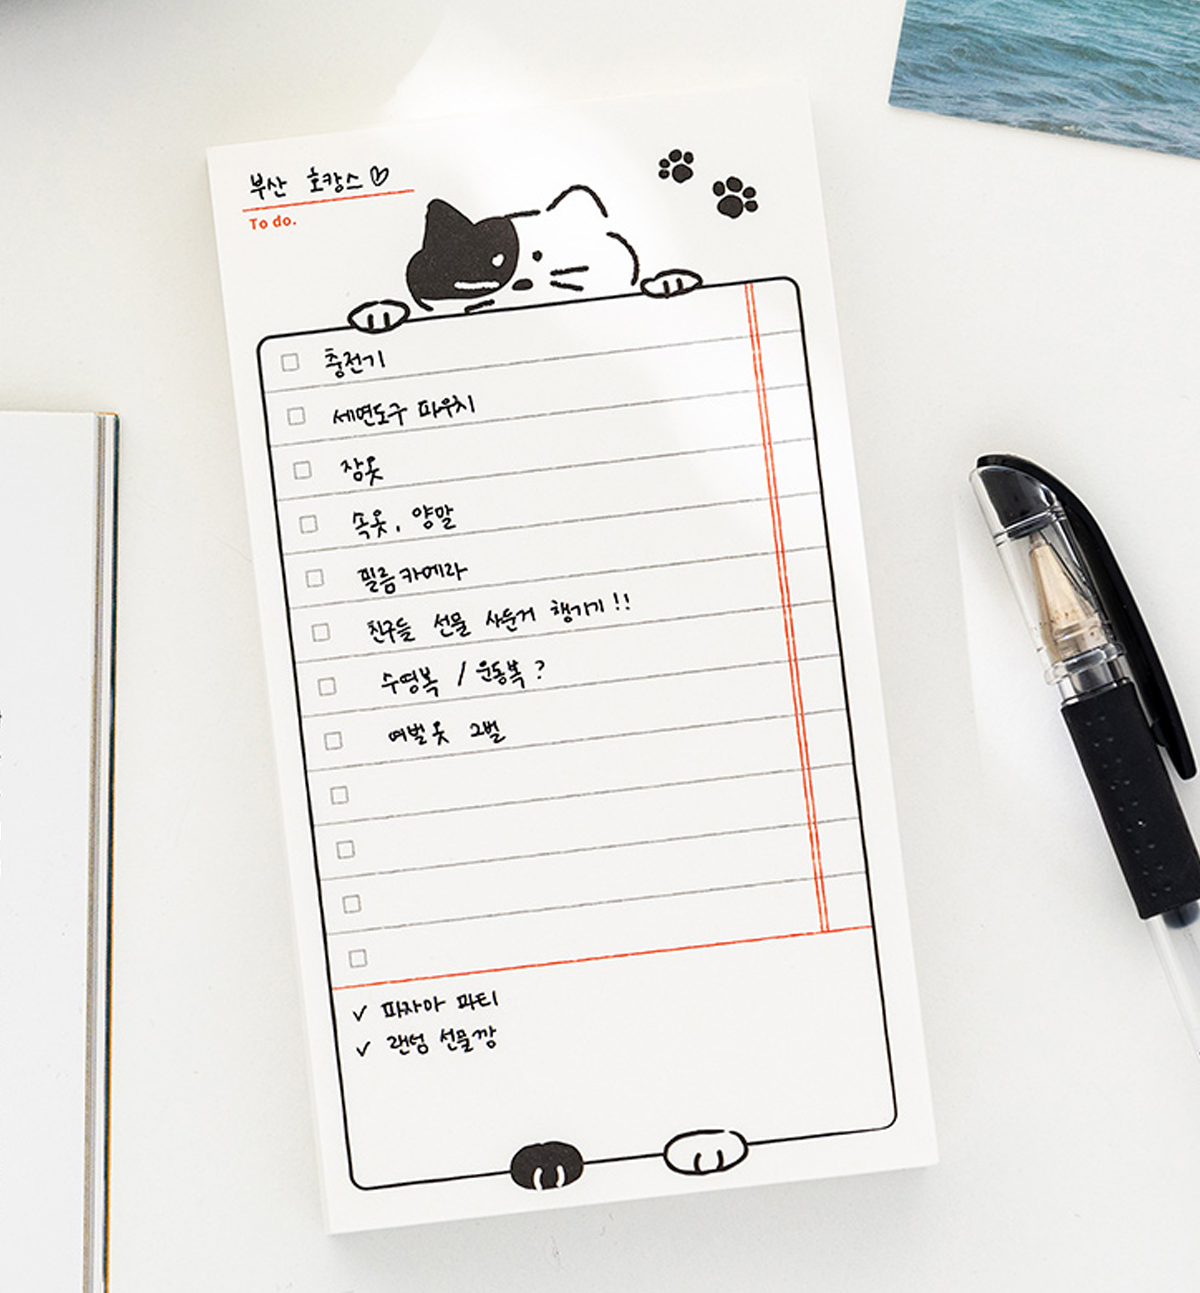 부산 호캉스♡
To do.
충전기
세면도구 파우치
잠옷
속옷, 양말
필름카메라
친구들 선물 사둔거 챙기기!!
수영복 / 운동복?
여벌옷 2벌
✓ 파자마 파티
✓ 랜덤 선물깡